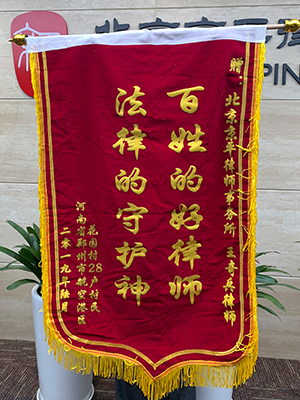 北京京平律
PIN
赠：北京京平律师事务所 王喜兵律师
百姓的好律师
法律的守护神
花园村28户村民
河南省郑州市航空港区
二零一九年陆月